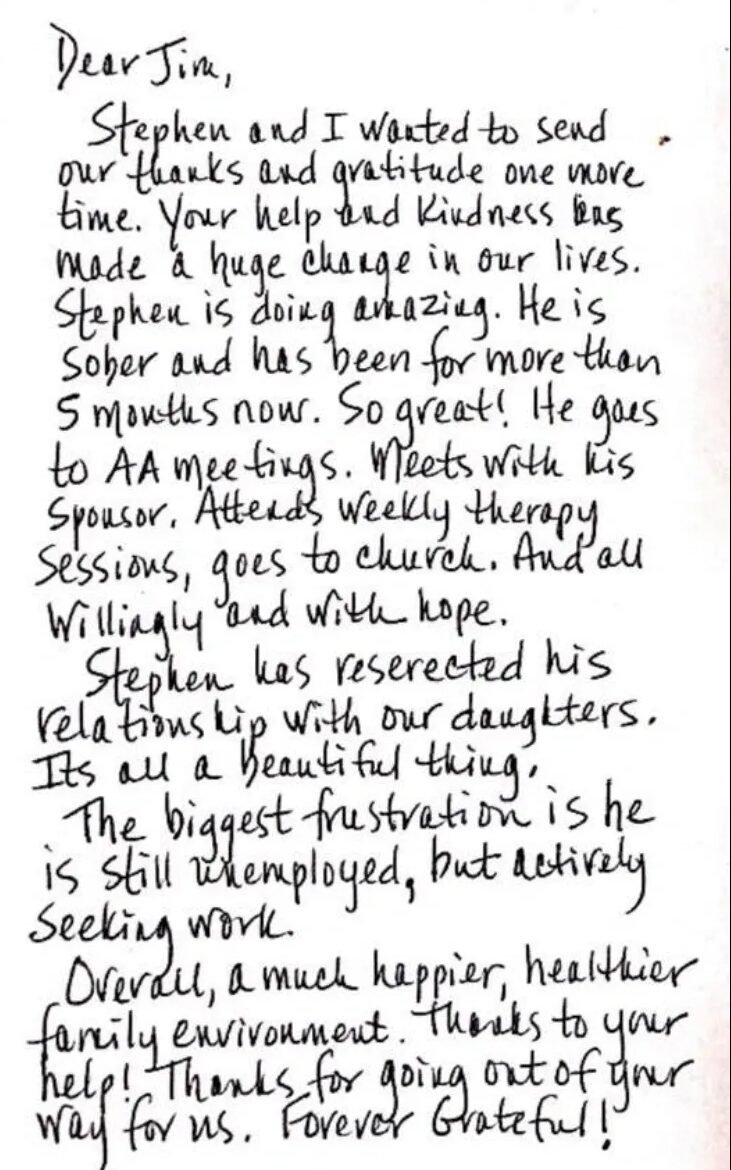 Dear Jim,
Stephen and I wanted to send
our thanks and gratitude one more
time. Your help and kindness has
made a huge change in our lives.
Stephen is doing amazing. He is
sober and has been for more than
5 months now. So great! He goes
to AA meetings. Meets with his
sponsor. Attends weekly therapy
sessions, goes to church. And all
willingly and with hope.
Stephen has reserected his
relationship with our daughters.
Its all a beautiful thing.
The biggest frustration is he
is still unemployed, but actively
seeking work.
Overall, a much happier, healthier
family environment. Thanks to your
help! Thanks for going out of your
way for us. Forever Grateful!